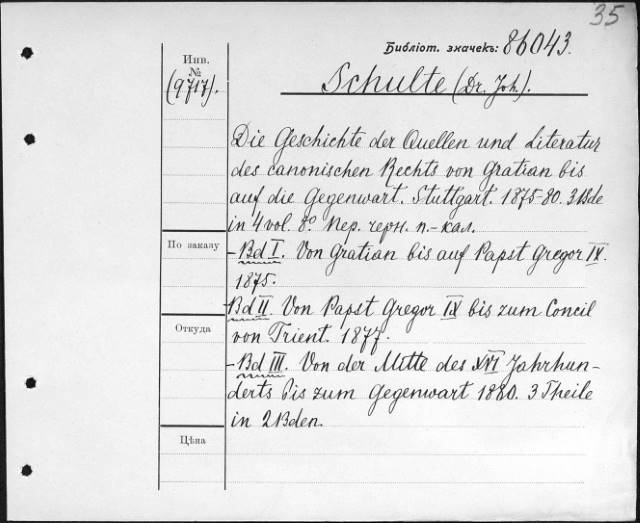 35
Библіот. значекъ: 86043.
Инв.
№
(9717).
Schulte (Dr. Joh.).
Die Geschichte der Quellen und Literatur
des canonischen Rechts von Gratian bis
auf die Gegenwart. Stuttgart. 1875-80. 3 Bde
in 4 vol. 8° Пер. черн. п.-кал.
По заказу
- Bd I. Von Gratian bis auf Papst Gregor IX.
1875.
- Bd II. Von Papst Gregor IX bis zum Concil
Откуда
von Trient. 1877.
- Bd III. Von der Mitte des XVI Jahrhun-
derts bis zum Gegenwart 1880. 3 Theile
in 2 Bden.
Цѣна